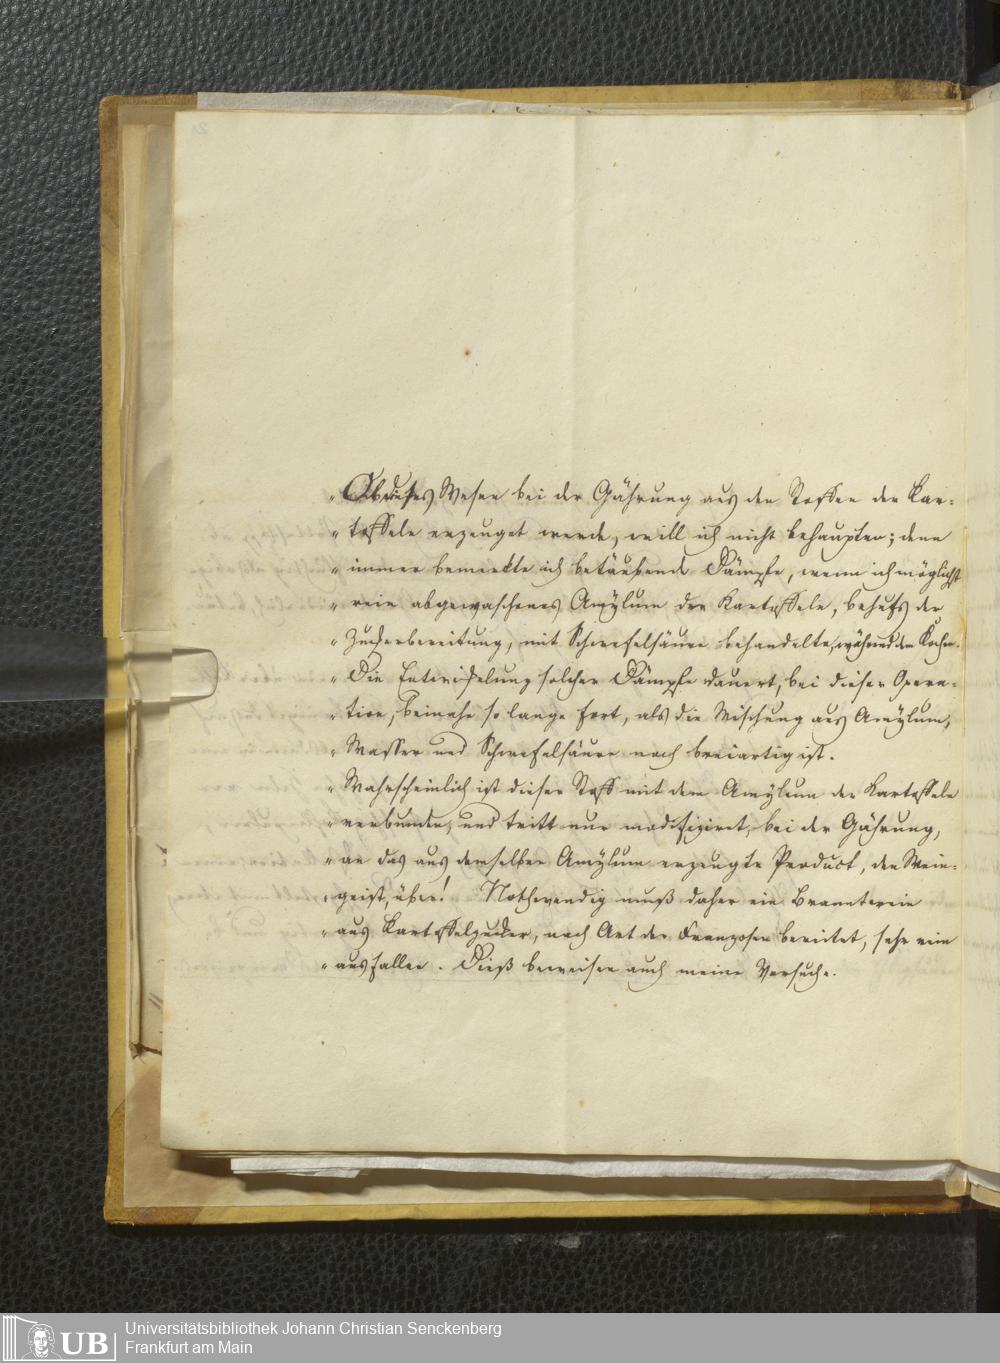 „ Ob dieses Wesen bei der Gährung aus den Stoffen der Kar-
„ toffeln erzeuget werde, will ich nicht behaupten; denn
„ immer bemerkte ich betäubende Dämpfe, wenn ich möglichst
„ rein abgewaschenes Amÿlum der Kartoffeln, behufs der
„ Zuckerbereitung, mit Schwefelsäure behandelte, während dem Kochen.
„ Die Entwickelung solcher Dämpfe dauert, bei dieser Opera-
„ tion, beinahe so lange fort, als die Mischung aus Amÿlum,
„ Wasser und Schwefelsäure noch breiartig ist.
„ Wahrscheinlich ist dieser Stoff mit dem Amÿlum der Kartoffeln
„ verbunden, und tritt nur modifiziret, bei der Gährung,
„ an das aus demselben Amÿlum erzeugte Product, den Wein-
„ geist, über! Nothwendig muß daher ein Branntwein
„ aus Kartoffelzucker, nach Art der Franzosen bereitet, sehr rein
„ ausfallen. Dieß beweisen auch meine Versuche.
UB
Universitätsbibliothek Johann Christian Senckenberg
Frankfurt am Main